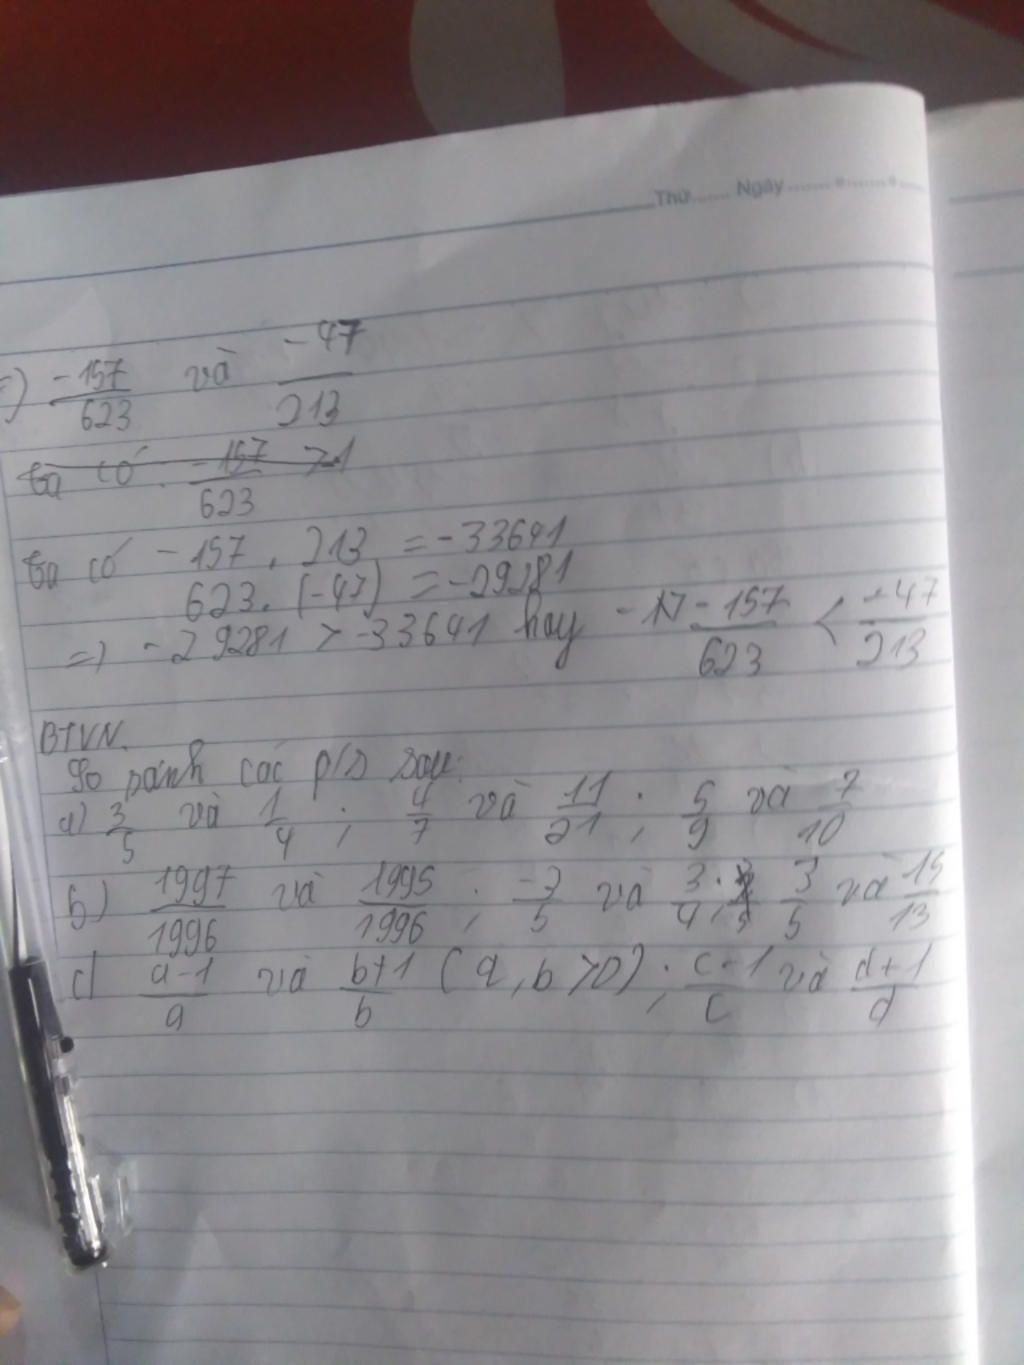 Thứ....... Ngày...............
=) -157/623 và -47/213
ta có: -157/623 >1
ta có -157 . 213 = -33641
623. (-47) = -29281
=) -29281 > -33641 hay -157/623 < -47/213
BTVN.
So sánh các p/s sau:
a) 3/5 và 1/4 ; 4/7 và 11/21 ; 5/9 và 7/10
b) 1997/1996 và 1995/1996 ; -3/5 và 3/4 ; 3/5 và 15/13
c) a-1/a và b+1/b (a, b >0) ; c-1/c và d+1/d